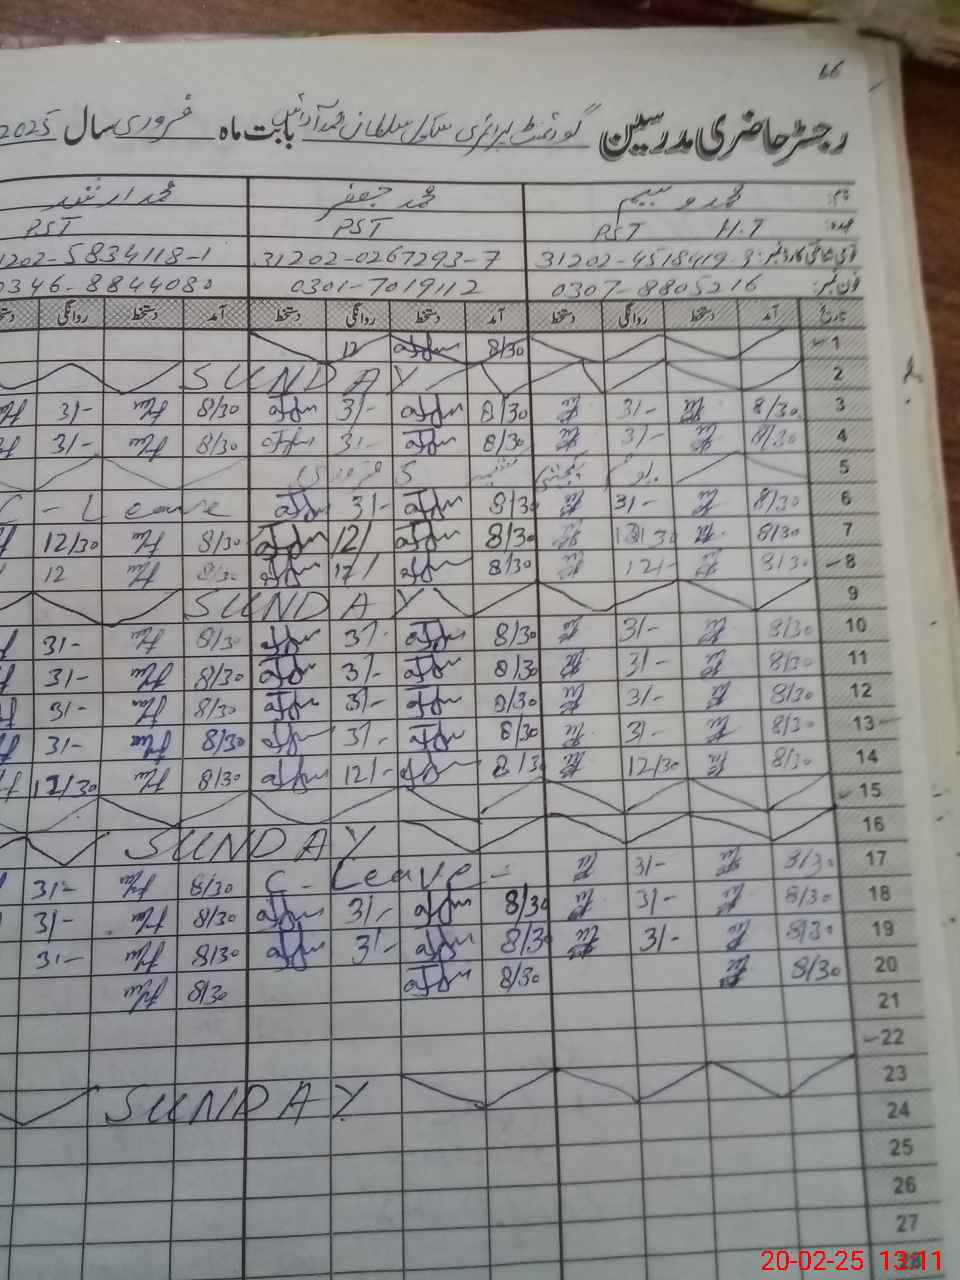 66
رجسٹر حاضری مدرسین گورنمنٹ پرائمری سکول سلطان محمد بابت ماہ فروری سال 2025
نام: محمد وسیم محمد جعفر محمد ارشد
عہدہ: PST H.T PST PST
قومی شناختی کارڈ نمبر: 31202-4518419-9 31202-0267293-7 1202-5834118-1
فون نمبر: 0307-8805216 0301-7019112 0346-8844080
تاریخ آمد دستخط روانگی دستخط آمد دستخط روانگی دستخط آمد دستخط روانگی
1 8/30 12
2 SUNDAY
3 8/30 3/- 8/30 3/- 8/30 3/-
4 8/30 3/- 8/30 3/- 8/30 3/-
5 یوم یکجہتی کشمیر 5 فروری
6 8/30 3/- 8/30 3/- C - Leave
7 8/30 12/30 8/30 12/ 8/30 12/30
8 8/30 12/- 8/30 12/ 8/30 12
9 SUNDAY
10 8/30 3/- 8/30 3/- 8/30 3/-
11 8/30 3/- 8/30 3/- 8/30 3/-
12 8/30 3/- 8/30 3/- 8/30 3/-
13 8/30 3/- 8/30 3/- 8/30 3/-
14 8/30 12/30 8/30 12/- 8/30 12/30
15
16 SUNDAY
17 8/30 3/- C - Leave - 8/30 3/-
18 8/30 3/- 8/30 3/- 8/30 3/-
19 8/30 3/- 8/30 3/- 8/30 3/-
20 8/30 8/30 8/30
21
22
23 SUNDAY
24
25
26
27
28
20-02-25 13:11